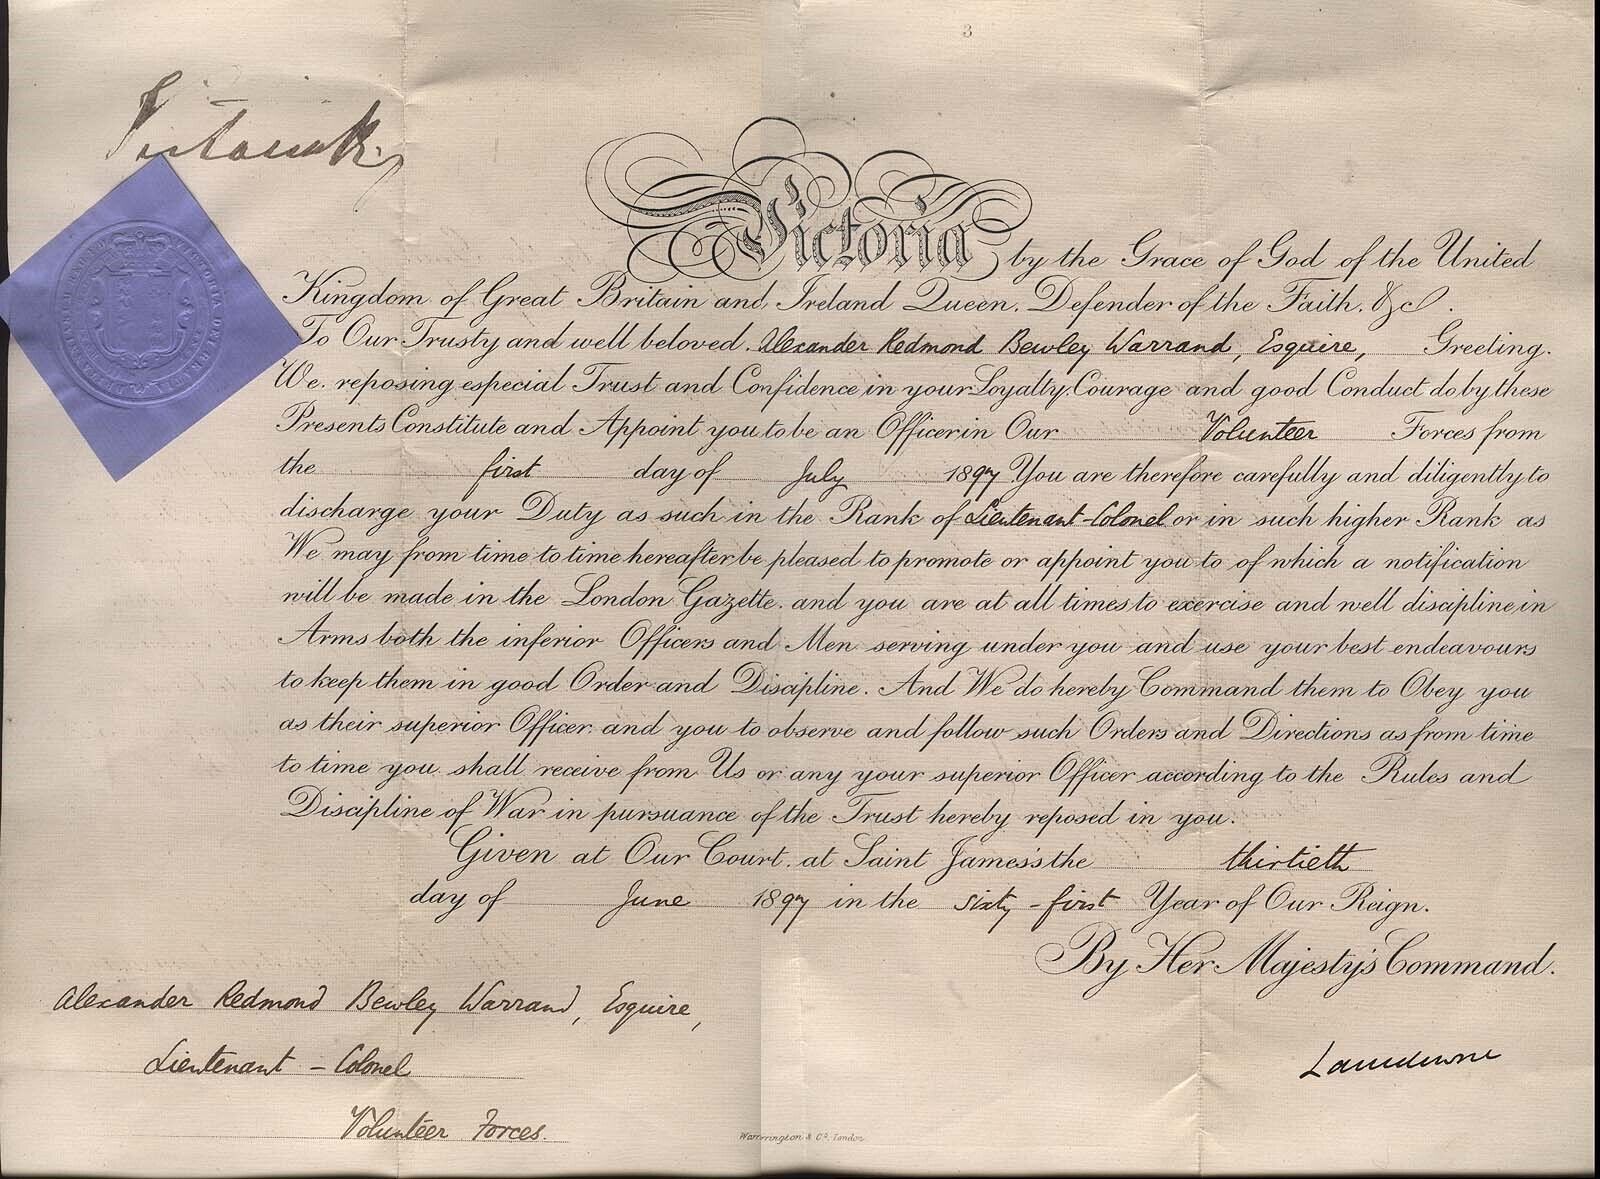 3
Victoria R
Victoria by the Grace of God of the United
Kingdom of Great Britain and Ireland Queen. Defender of the Faith. &c.
To Our Trusty and well beloved Alexander Redmond Bewley Warrand, Esquire, Greeting.
We. reposing especial Trust and Confidence in your Loyalty. Courage and good Conduct do by these
Presents Constitute and Appoint you to be an Officer in Our Volunteer Forces from
the first day of July 1897 You are therefore carefully and diligently to
discharge your Duty as such in the Rank of Lieutenant-Colonel or in such higher Rank as
We may from time to time hereafter be pleased to promote or appoint you to of which a notification
will be made in the London Gazette. and you are at all times to exercise and well discipline in
Arms both the inferior Officers and Men serving under you and use your best endeavours
to keep them in good Order and Discipline. And We do hereby Command them to Obey you
as their superior Officer. and you to observe and follow such Orders and Directions as from time
to time you shall receive from Us or any your superior Officer according to the Rules and
Discipline of War in pursuance of the Trust hereby reposed in you.
Given at Our Court. at Saint James's the thirtieth
day of June 1897 in the sixty-first Year of Our Reign.
By Her Majesty's Command.
Alexander Redmond Bewley Warrand, Esquire,
Lieutenant-Colonel
Volunteer Forces.
Lansdowne
Warrington & Co. London